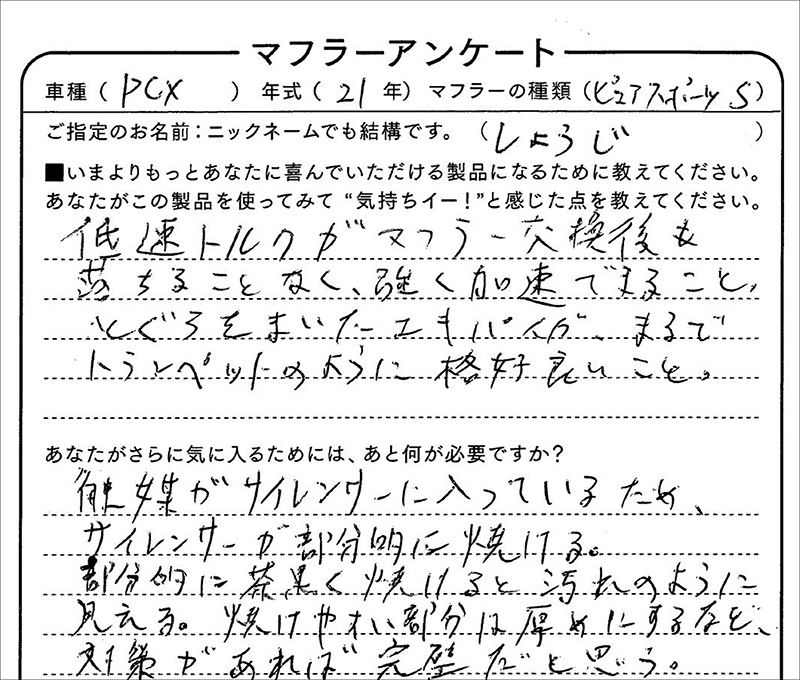 マフラーアンケート
車種(PCX) 年式(21年) マフラーの種類(ピュアスポーツS)
ご指定のお名前:ニックネームでも結構です。(しょうじ)
■いまよりもっとあなたに喜んでいただける製品になるために教えてください。
あなたがこの製品を使ってみて“気持ちイー!”と感じた点を教えてください。
低速トルクがマフラー交換後も
落ちることなく、強く加速できること。
とぐろをまいたエキパイが、まるで
トランペットのように格好良いこと。
あなたがさらに気に入るためには、あと何が必要ですか?
触媒がサイレンサーに入っているため、
サイレンサーが部分的に焼ける。
部分的に茶黒く焼けると汚れのように
見える。焼けやすい部分は厚めにするなど、
対策があれば完璧だと思う。